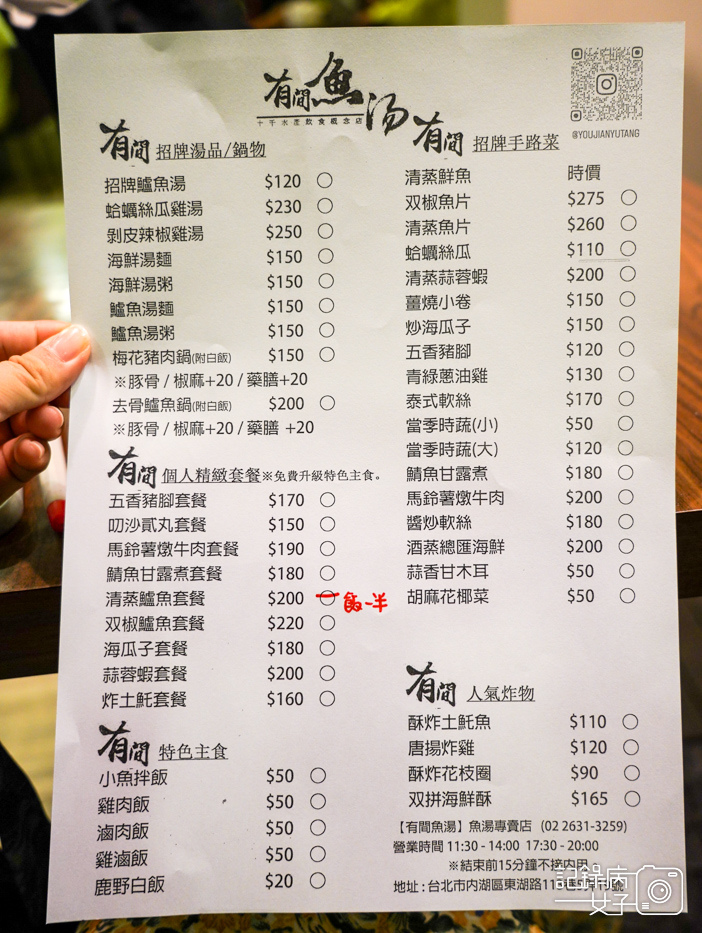 有間魚湯
十千水產飲食概念店
@YOUJIANYUTANG
有間 招牌湯品/鍋物
招牌鱸魚湯 $120 ○
蛤蠣絲瓜雞湯 $230 ○
剝皮辣椒雞湯 $250 ○
海鮮湯麵 $150 ○
海鮮湯粥 $150 ○
鱸魚湯麵 $150 ○
鱸魚湯粥 $150 ○
梅花豬肉鍋(附白飯) $150 ○
※豚骨 / 椒麻+20 / 藥膳+20
去骨鱸魚鍋(附白飯) $200 ○
※豚骨 / 椒麻+20 / 藥膳 +20
有間 個人精緻套餐※免費升級特色主食。
五香豬腳套餐 $170 ○
叻沙貳丸套餐 $150 ○
馬鈴薯燉牛肉套餐 $190 ○
鯖魚甘露煮套餐 $180 ○
清蒸鱸魚套餐 $200 ○ 飯一半
双椒鱸魚套餐 $220 ○
海瓜子套餐 $180 ○
蒜蓉蝦套餐 $200 ○
炸土魠套餐 $160 ○
有間 特色主食
小魚拌飯 $50 ○
雞肉飯 $50 ○
滷肉飯 $50 ○
雞滷飯 $50 ○
鹿野白飯 $20 ○
有間 招牌手路菜
清蒸鮮魚 時價
双椒魚片 $275 ○
清蒸魚片 $260 ○
蛤蠣絲瓜 $110 ○
清蒸蒜蓉蝦 $200 ○
薑燒小卷 $150 ○
炒海瓜子 $150 ○
五香豬腳 $120 ○
青綠蔥油雞 $130 ○
泰式軟絲 $170 ○
當季時蔬(小) $50 ○
當季時蔬(大) $120 ○
鯖魚甘露煮 $180 ○
馬鈴薯燉牛肉 $200 ○
醬炒軟絲 $180 ○
酒蒸總匯海鮮 $200 ○
蒜香甘木耳 $50 ○
胡麻花椰菜 $50 ○
有間 人氣炸物
酥炸土魠魚 $110 ○
唐揚炸雞 $120 ○
酥炸花枝圈 $90 ○
双拼海鮮酥 $165 ○
【有間魚湯】魚湯專賣店 (02 2631-3259)
營業時間 11:30 - 14:00 17:30 - 20:00
※結束前15分鐘不接內用
地址 : 台北市內湖區東湖路11
記錄病
女子